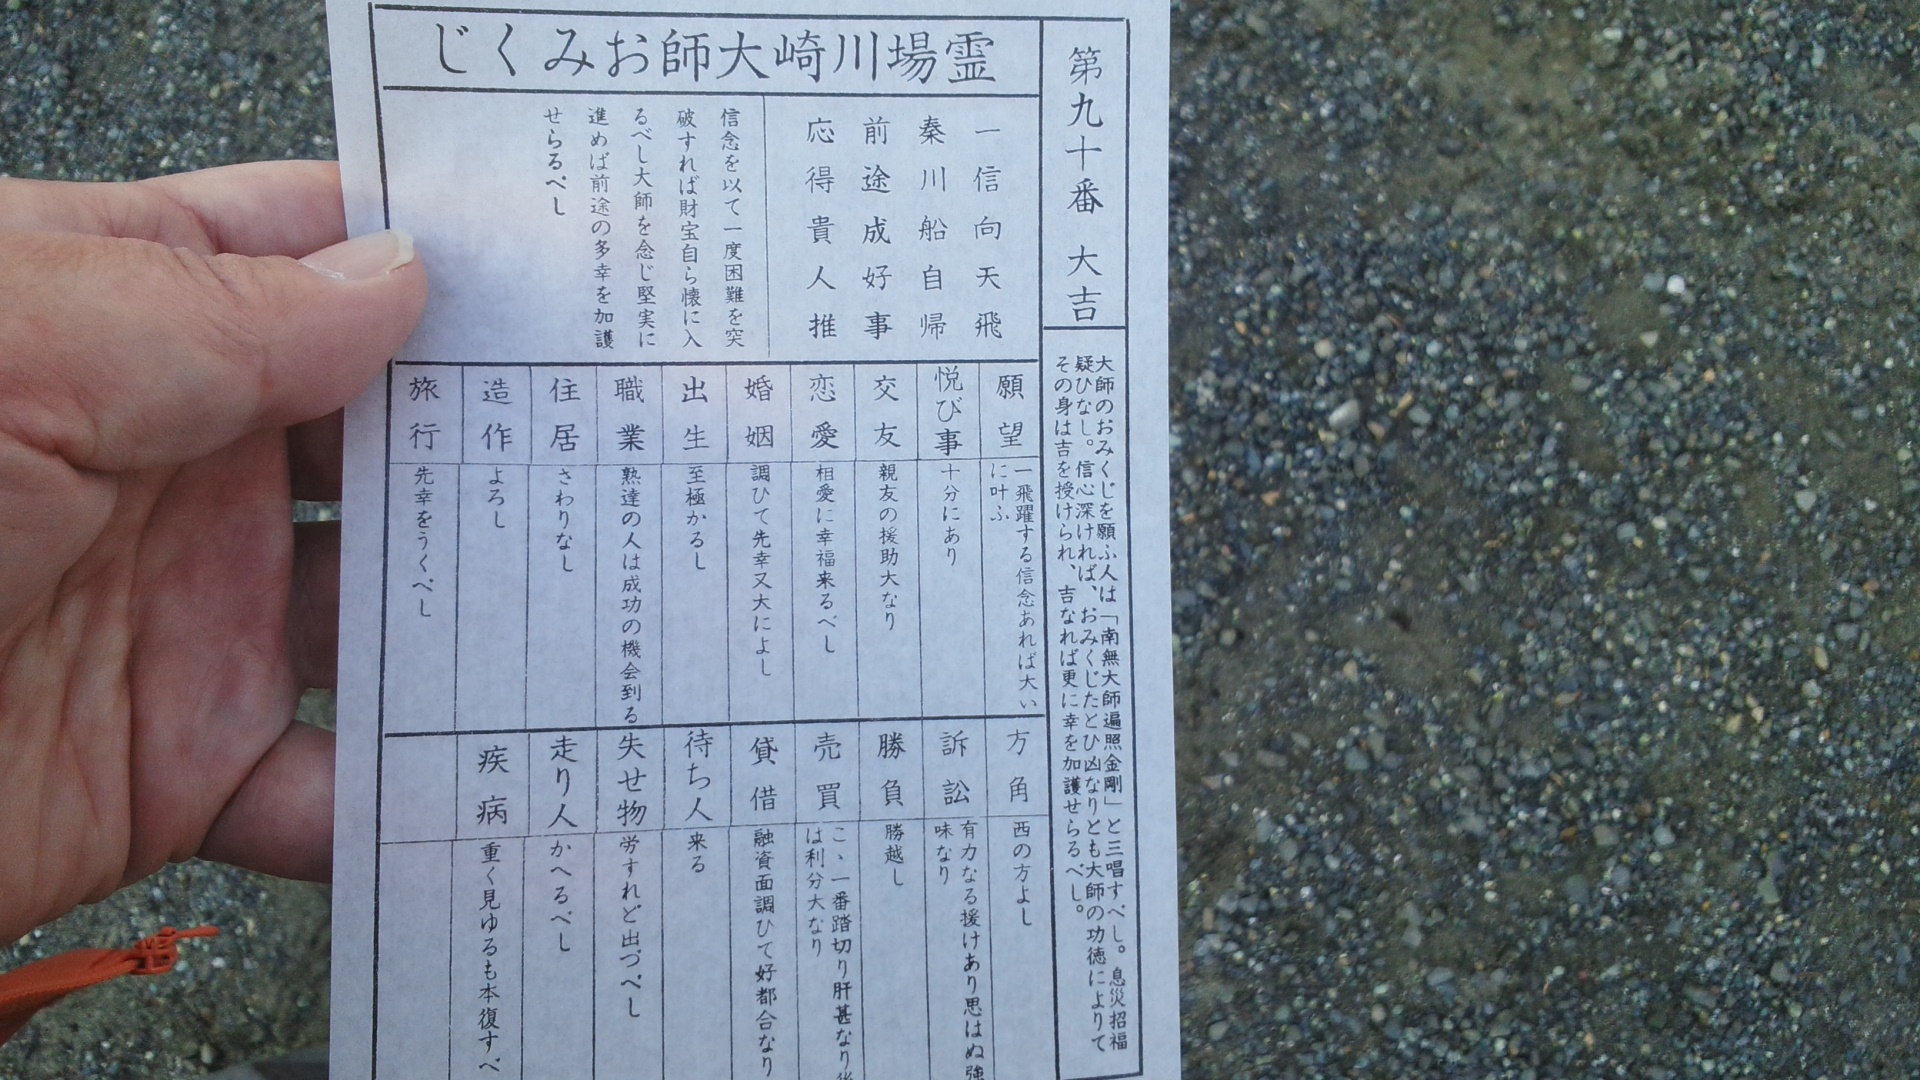 第九十番 大吉
大師のおみくじを願ふ人は「南無大師遍照金剛」と三唱すべし。息災招福
疑ひなし。信心深ければ、おみくじたとひ凶なりとも大師の功徳によりて
その身は吉を授けられ、吉なれば更に幸を加護せらるべし。
霊場川崎大師おみくじ
一信向天飛
秦川船自帰
前途成好事
応得貴人推
信念を以て一度困難を突
破すれば財宝自ら懐に入
るべし大師を念じ堅実に
進めば前途の多幸を加護
せらるべし
願望
一飛躍する信念あれば大い
に叶ふ
悦び事
十分にあり
交友
親友の援助大なり
恋愛
相愛に幸福来るべし
婚姻
調ひて先幸又大によし
出生
至極かるし
職業
熟達の人は成功の機会到る
住居
さわりなし
造作
よろし
旅行
先幸をうくべし
方角
西の方よし
訴訟
有力なる援けあり思はぬ強
味なり
勝負
勝越し
売買
こゝ一番踏切り肝甚なり後
は利分大なり
貸借
融資面調ひて好都合なり
待ち人
来る
失せ物
労すれど出づべし
走り人
かへるべし
疾病
重く見ゆるも本復すべ